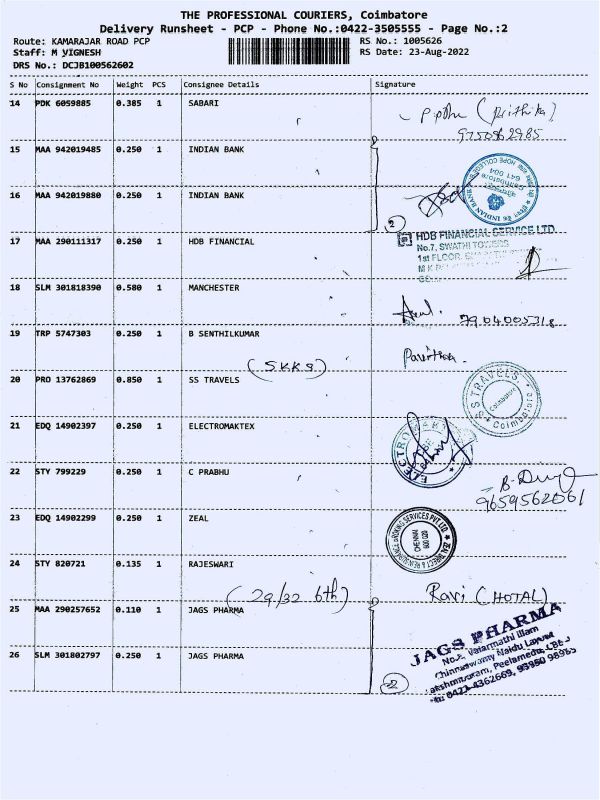 THE PROFESSIONAL COURIERS, Coimbatore
Delivery Runsheet - PCP - Phone No.:0422-3505555 - Page No.:2
Route: KAMARAJAR ROAD PCP
RS No.: 1005626
Staff: M VIGNESH
RS Date: 23-Aug-2022
DRS No.: DCJB100562602
S No Consignment No Weight PCS Consignee Details Signature
14 PDK 6059885 0.385 1 SABARI
(Prithika)
9750562985
15 MAA 942019485 0.250 1 INDIAN BANK
16 MAA 942019880 0.250 1 INDIAN BANK
2
INDIAN BANK
Coimbatore
641 004
17 MAA 290111317 0.250 1 HDB FINANCIAL
HDB FINANCIAL SERVICE LTD.
No.7, SWATHI TOWERS
1st FLOOR,
18 SLM 301818390 0.580 1 MANCHESTER
7904005318
19 TRP 5747303 0.250 1 B SENTHILKUMAR
Pavithra.
(SKKS)
20 PRO 13762869 0.850 1 SS TRAVELS
S S TRAVELS
Coimbatore
Coimbatore
21 EDQ 14902397 0.250 1 ELECTROMAKTEX
22 STY 799229 0.250 1 C PRABHU
9659562061
23 EDQ 14902299 0.250 1 ZEAL
CHENNAI
600 020
24 STY 820721 0.135 1 RAJESWARI
(29/32 6th) Ravi (HOTAL)
25 MAA 290257652 0.110 1 JAGS PHARMA
26 SLM 301802797 0.250 1 JAGS PHARMA
2
JAGS PHARMA
No.2, Valarmathi Illam
Chinnaswamy Naidu Layout
Lakshmipuram, Peelamedu, CBE
0422-4362669, 93950 98985